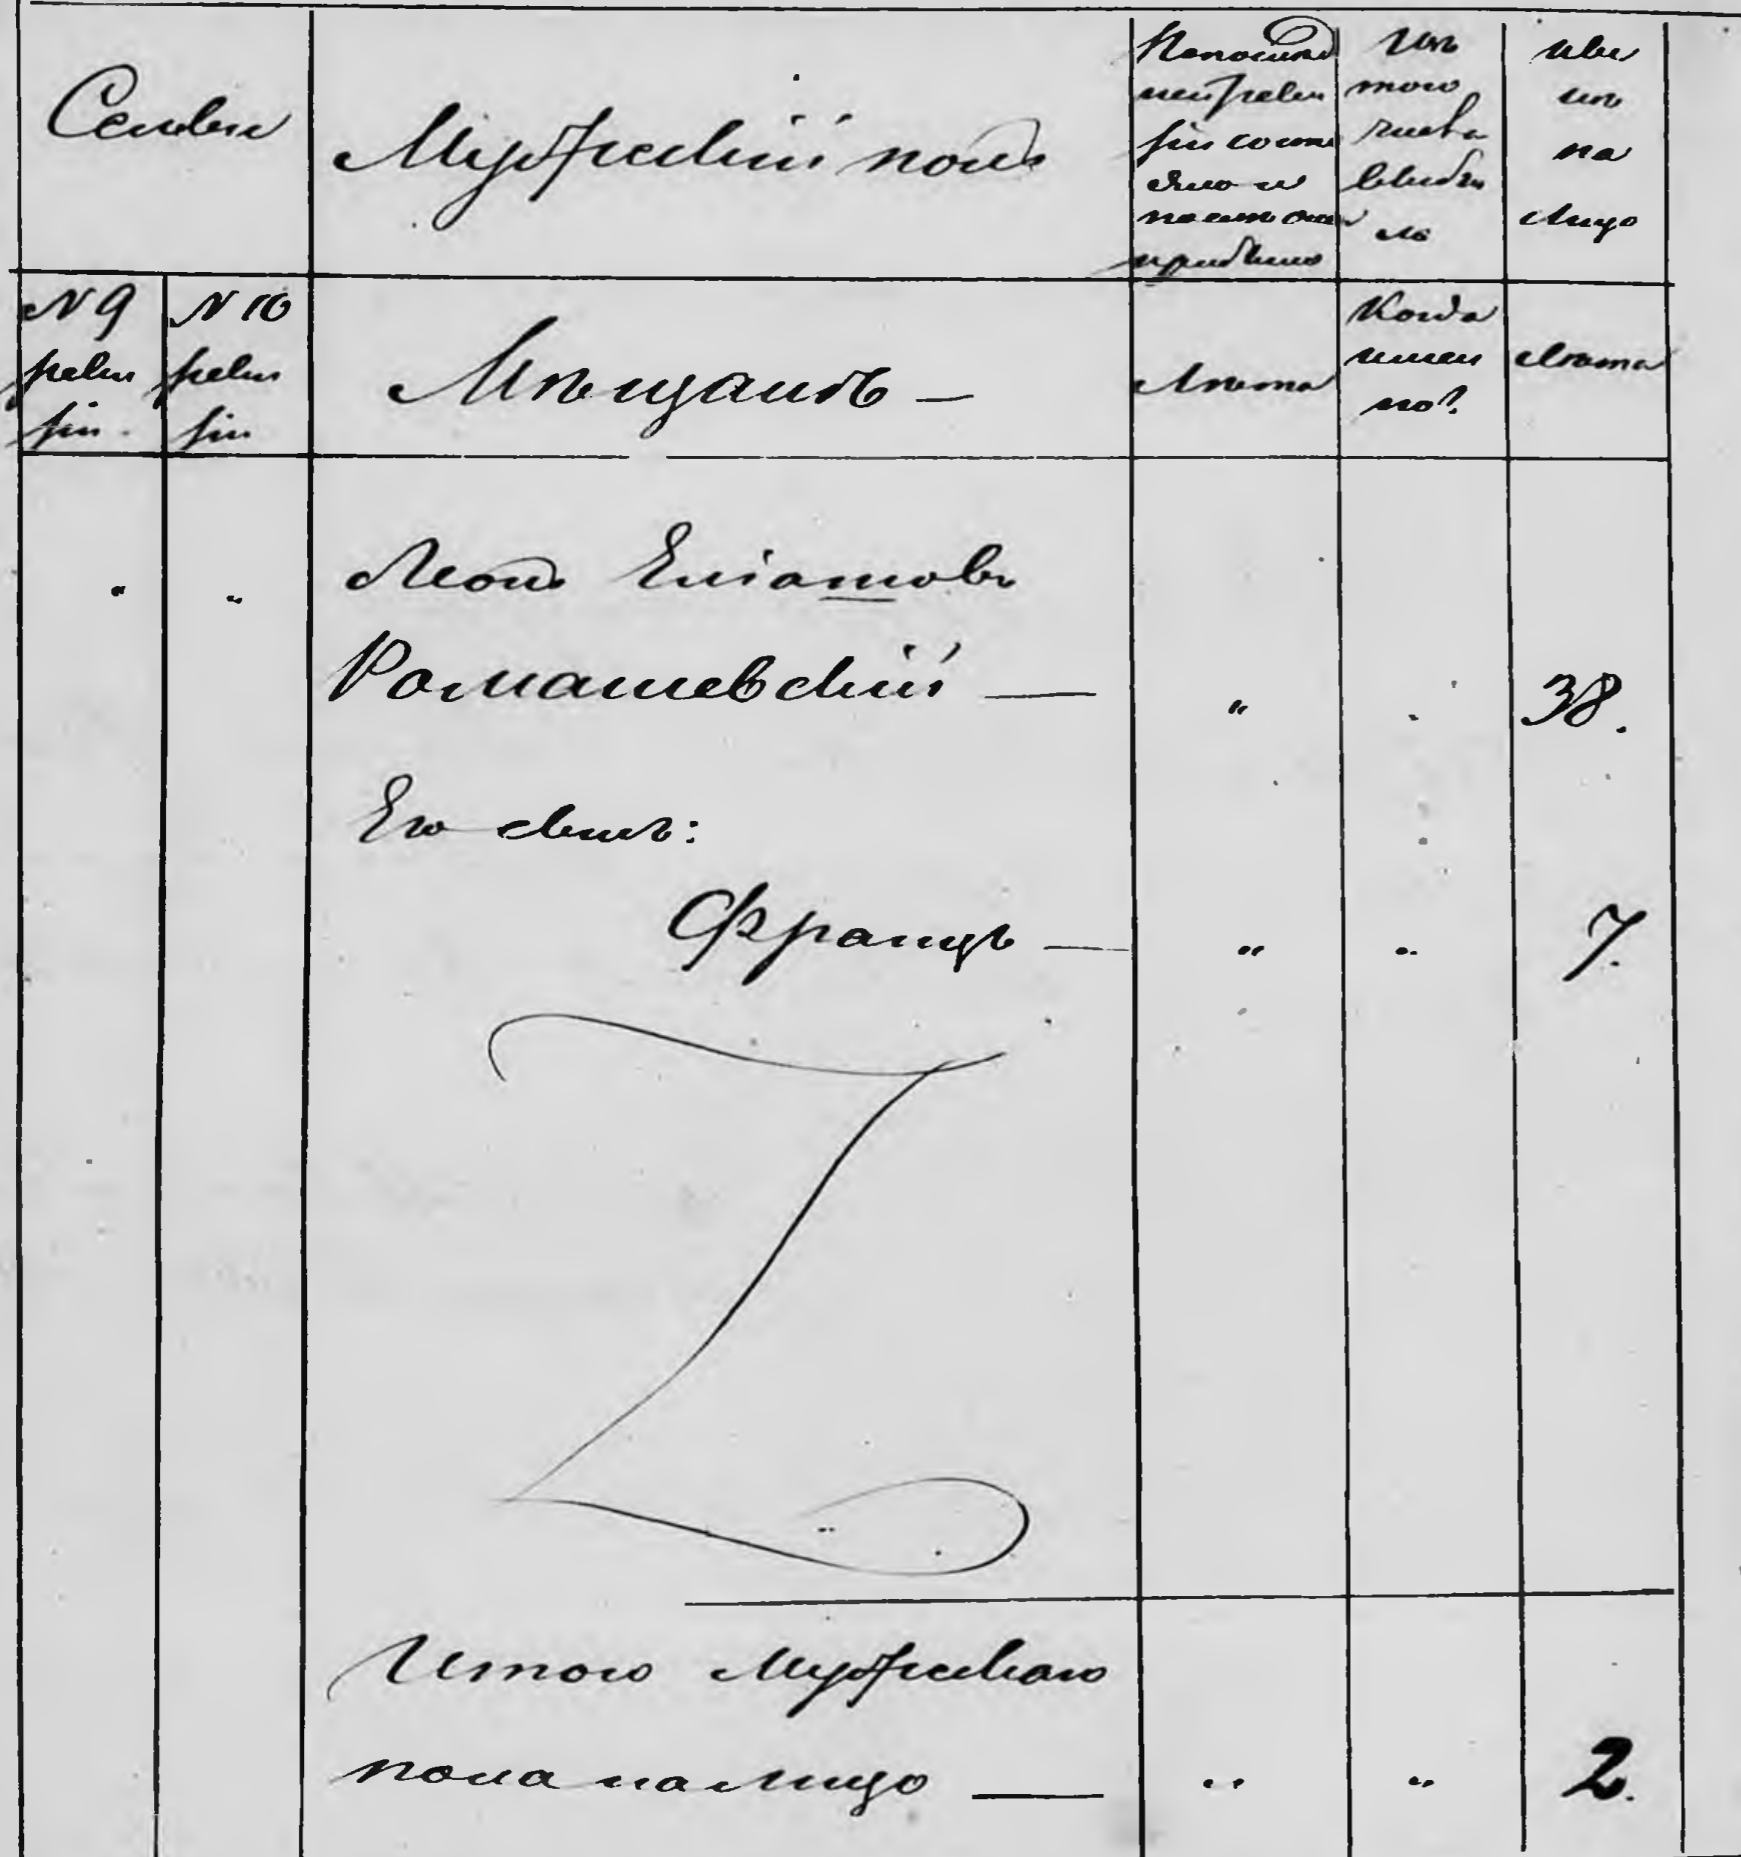 Семьи
Мужескій полъ
По послѣд
ней реви
зіи состо
яло и
после оной
прибыло
Изъ
того
числа
выбы
ло
Нынѣ
на
лицо
№ 9
реви
зіи
№ 10
реви
зіи
Мѣщанъ —
Лѣта
Когда
имен
но?
Лѣта
" " Леонъ
Ромашевскій — " " 38.
Его сынъ:
Францъ — " " 7.
Итого Мужескаго
пола на лицо — " " 2.